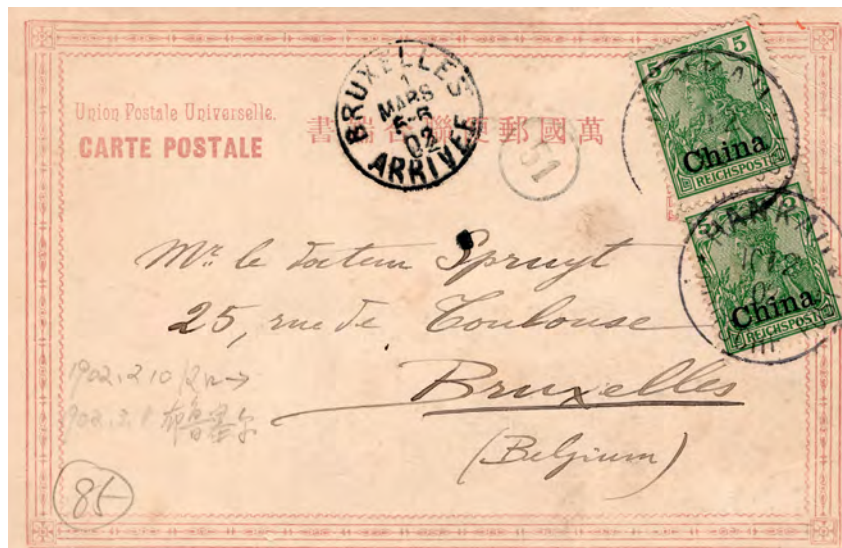 Union Postale Universelle.
CARTE POSTALE
萬國郵便聯合端書
BRUXELLES
1
MARS
5-6
02
ARRIVÉE
51
5 5
China
REICHSPOST
HANKAU
China
REICHSPOST
Mr le docteur Spruyt
25, rue de Toulouse
Bruxelles
(Belgium)
1902.2.10
布鲁塞尔
85